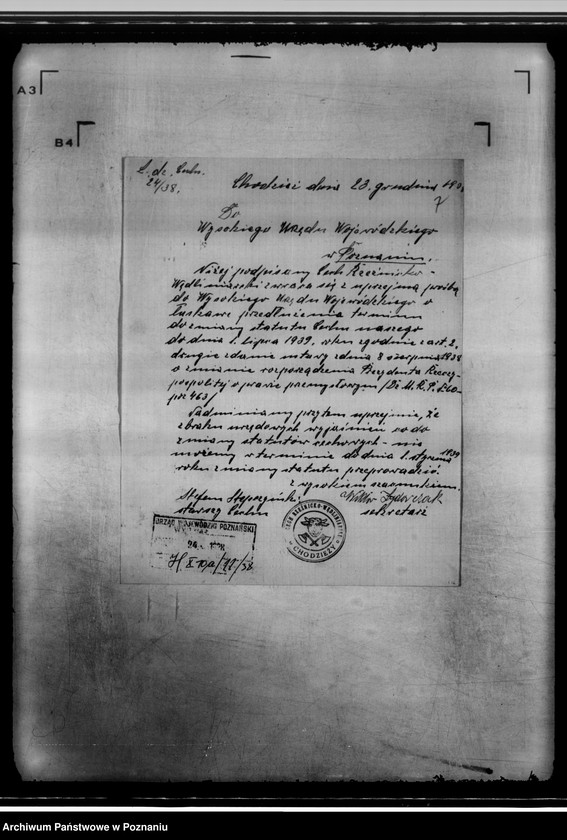 A3
B4
L. dz. Cechu.
24/38.
Chodzież dnia 23. grudnia 193
7
Do
Wysokiego Urzędu Wojewódzkiego
w Poznaniu.
Niżej podpisany Cech Rzeźnicko-
Wędliniarski zwraca się z uprzejmą prośbą
do Wysokiego Urzędu Wojewódzkiego o
łaskawe przedłużenie terminu
do zmiany statutu Cechu naszego
do dnia 1. lipca 1939. roku zgodnie z art. 2.
drugie zdanie ustawy z dnia 8 sierpnia 1938
o zmianie rozporządzenia Prezydenta Rzeczy-
pospolitej o prawie przemysłowym /Dz. U. R. P. 60-
poz 463/
Nadmieniamy przytem uprzejmie, że
z braku urzędowych wyjaśnień co do
zmiany statutów cechowych - nie
możemy w terminie do dnia 1. stycznia 1939
roku zmiany statutu przeprowadzić.
z wysokiem szacunkiem.
Stefan
starszy Cechu
sekretarz
URZĄD WOJEWÓDZKI POZNAŃSKI
24
CECH RZEŹNICKO-WĘDLINIARSKI
CHODZIEŻY
Archiwum Państwowe w Poznaniu